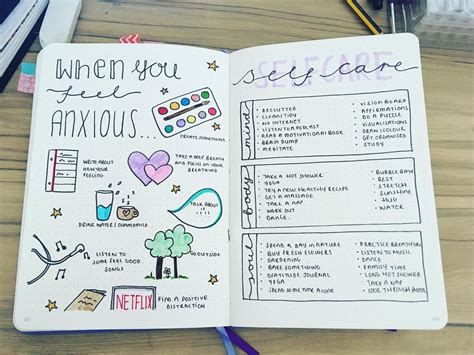 WHEN YOU
feel
ANXIOUS...
CREATE SOMETHING
WRITE ABOUT
HOW YOUR
FEELING
TAKE A DEEP BREATH
AND FOCUS ON YOUR
BREATHING
TALK ABOUT
IT
DRINK WATER / CHAMOMILE
LISTEN TO
SOME FEEL GOOD
SONGS
GO OUTSIDE
NETFLIX
FIND A POSITIVE
DISTRACTION
SELFCARE
self care
mind
DECLUTTER
CLEAN / TIDY
NO INTERNET
LISTEN TO PODCAST
READ A MOTIVATIONAL BOOK
BRAIN DUMP
MEDITATE
VISION BOARD
AFFIRMATIONS
DO A PUZZLE
VISUALISATIONS
DRAW / COLOUR
GET ORGANISED
STUDY
body
TAKE A HOT SHOWER
YOGA
TRY A NEW HEALTHY RECIPE
GET A MASSAGE
TAKE A NAP
WORK OUT
DANCE
BUBBLE BATH
REST
STRETCH
SUNSHINE
HUG
WATER
soul
SPEND A DAY IN NATURE
BUY FRESH FLOWERS
GARDENING
BAKE SOMETHING
GRATITUDE JOURNAL
YOGA
SPEND SOME TIME ALONE
PRACTICE BREATHING
LISTEN TO MUSIC
DANCE
FAMILY TIME
LONG HOT SHOWER
TAKE A NAP
LOOK THROUGH